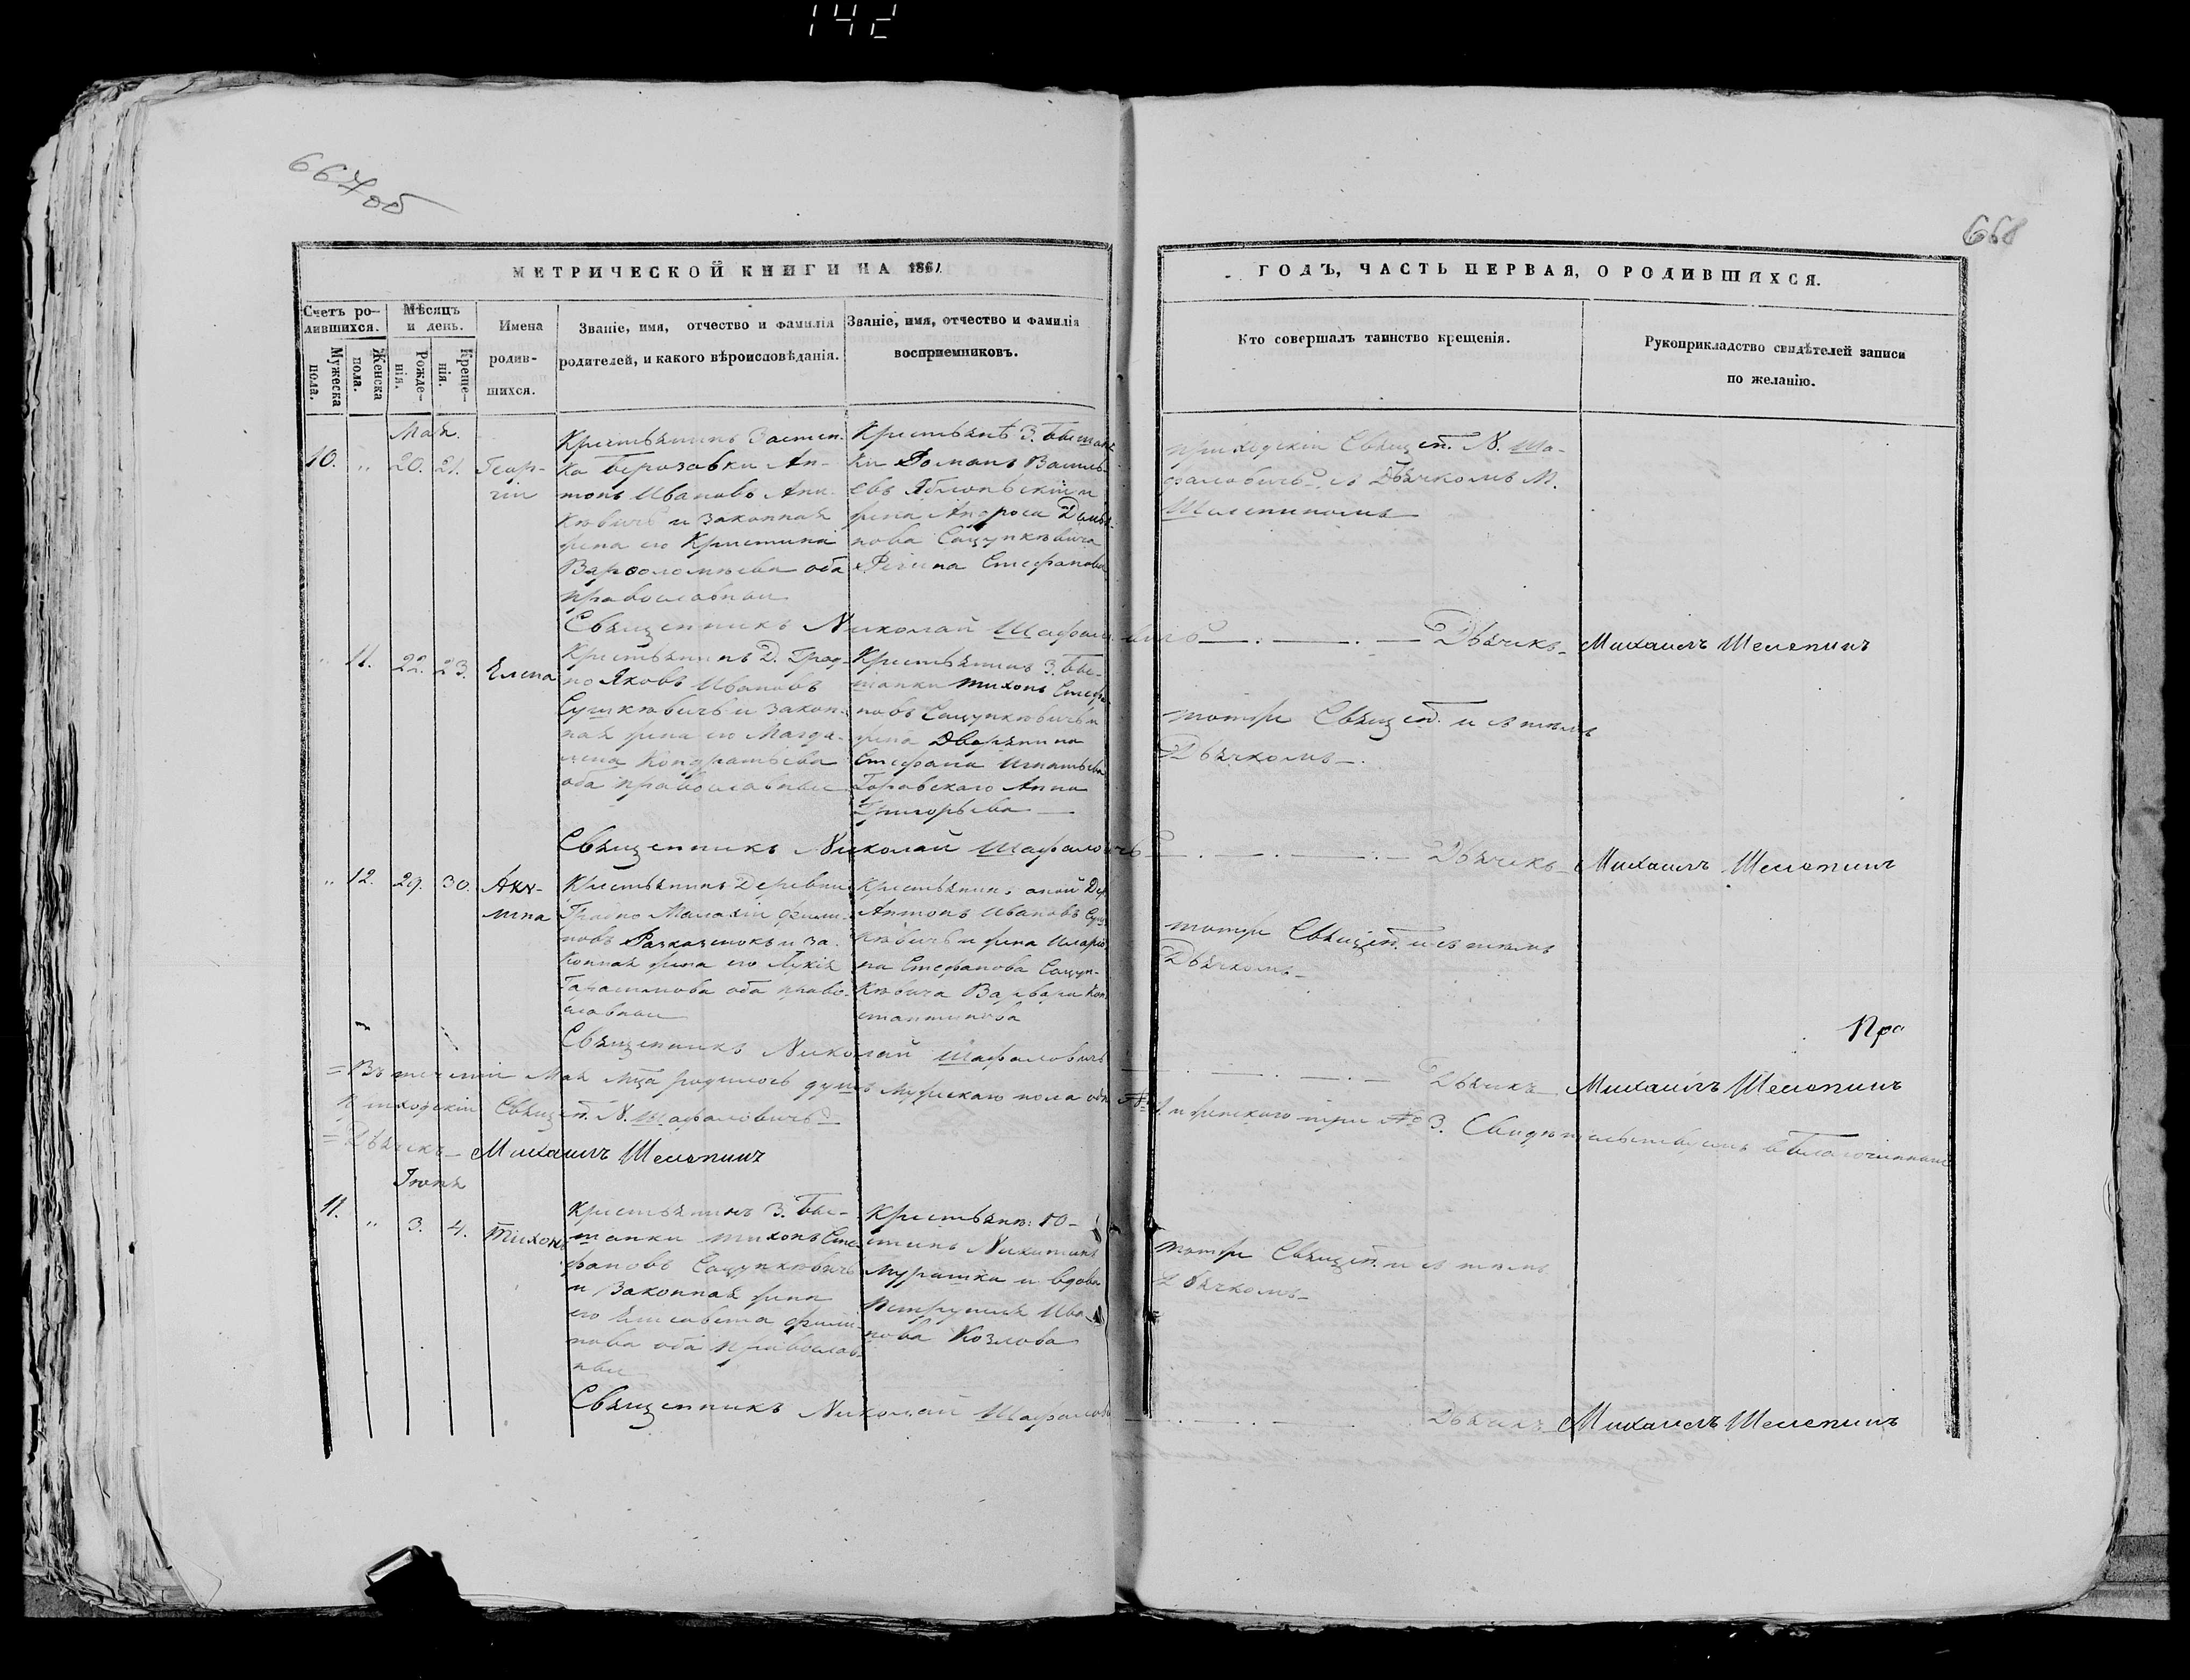 142
667об
668
МЕТРИЧЕСКОЙ КНИГИ НА 1861
ГОДЪ, ЧАСТЬ ПЕРВАЯ, О РОДИВШИХСЯ.
Счетъ ро-
дившихся.
Мужеска
пола.
Женска
пола.
Мѣсяцъ
и день.
Рожде-
нія.
Креще-
нія.
Имена
родив-
шихся.
Званіе, имя, отчество и фамилія
родителей, и какого вѣроисповѣданія.
Званіе, имя, отчество и фамилія
восприемниковъ.
Кто совершалъ таинство крещенія.
Рукоприкладство свидѣтелей записи
по желанію.
Мая.
10. " 20. 21. Геор-
гій
Крестьянинъ Застен-
ка Берозовки Ан-
тонъ Ивановъ
и законная
жена его Кристина
Варѳоломѣева оба
православныи
Романъ Василь-
евъ
жена
Стефанова
приходскій Священ. Н. Ша-
фаловичъ съ Дьячкомъ М.
Шелепиномъ
Священникъ Николай Шафаловичъ Дьячкъ Михаилъ Шелепинъ
" 11. 22. 23. Елена
Крестьянинъ Д. Град-
но Яковъ Ивановъ
Сушкѣвичъ и закон-
ная жена его Магда-
лена Кондратьева
оба православныи
Крестьянинъ З. Бы-
шанки Тихонъ Стефа-
новъ Сацункѣвичъ и
жена Дворянина
Стефана Игнатьева
Горавскаго Анна
Григорьева
тотже Священ. и съ тѣмъ
Дьячкомъ
Священникъ Николай Шафаловичъ Дьячкъ Михаилъ Шелепинъ
" 12. 29. 30. Аку-
лина
Крестьянинъ Деревни
Градно Малахій Фили-
повъ и за-
конная жена его Лукія
Гарасимова оба право-
славныи
Крестьянинъ оной Дер.
Антонъ Ивановъ Суш-
кѣвичъ и жена Иларіо-
на Стефанова Сацун-
кѣвича Варвара Кон-
стантинова
тотже Священ. и съ тѣмъ
Дьячкомъ
Священникъ Николай Шафаловичъ Дьячкъ Михаилъ Шелепинъ
Про
Въ теченіи Мая м-ца родилось душъ мужскаго пола одна № 1 и женскаго три № 3. Свидѣтельствуемъ
Приходскій Священ. Н. Шафаловичъ
Дьячкъ Михаилъ Шелепинъ
Іюня
11. " 3. 4. Тихонъ
Крестьянинъ З. Бы-
шанки Тихонъ Сте-
фановъ Сацункѣвичъ
и законная жена
его Елисавета Фили-
пова оба православ-
ныи
Крестьянъ: Ю-
стинъ Никитинъ
Мурашка и вдова
Петрунеля Ива-
нова Козлова
тотже Священ. и съ тѣмъ
Дьячкомъ
Священникъ Николай Шафаловичъ Дьячкъ Михаилъ Шелепинъ